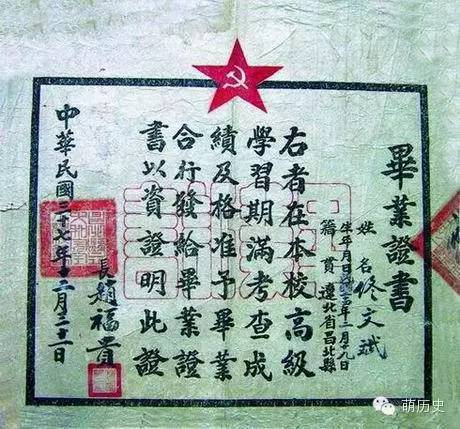 畢業證書
姓名 修文斌
生年月日 五年二月十九日
籍貫 遼北省昌北縣
右者在本校高級
學習期滿考查成
績及格准予畢業
合行發給畢業證
書以資證明此證
長趙福貴
中華民國三十七年十二月三十一日
萌历史